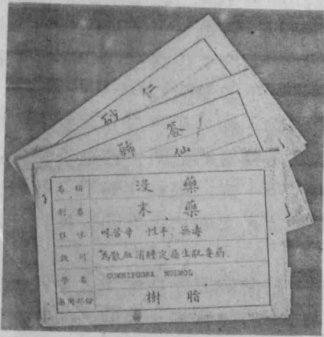 砂仁
簽
仙
名稱 沒藥
別名 末藥
性味 味苦辛 性平 無毒
效用 為散血消腫定痛生肌要藥
學名 COMMIPHORA MOLMOL
樹脂